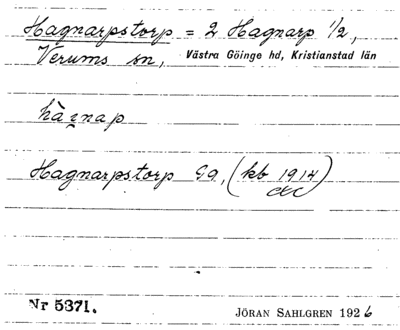 Hagnarpstorp = 2 Hagnarp 1/2,
Verums sn, Västra Göinge hd, Kristianstad län
Hagnarpstorp (kb 1914)
Nr 5371. JÖRAN SAHLGREN 1926